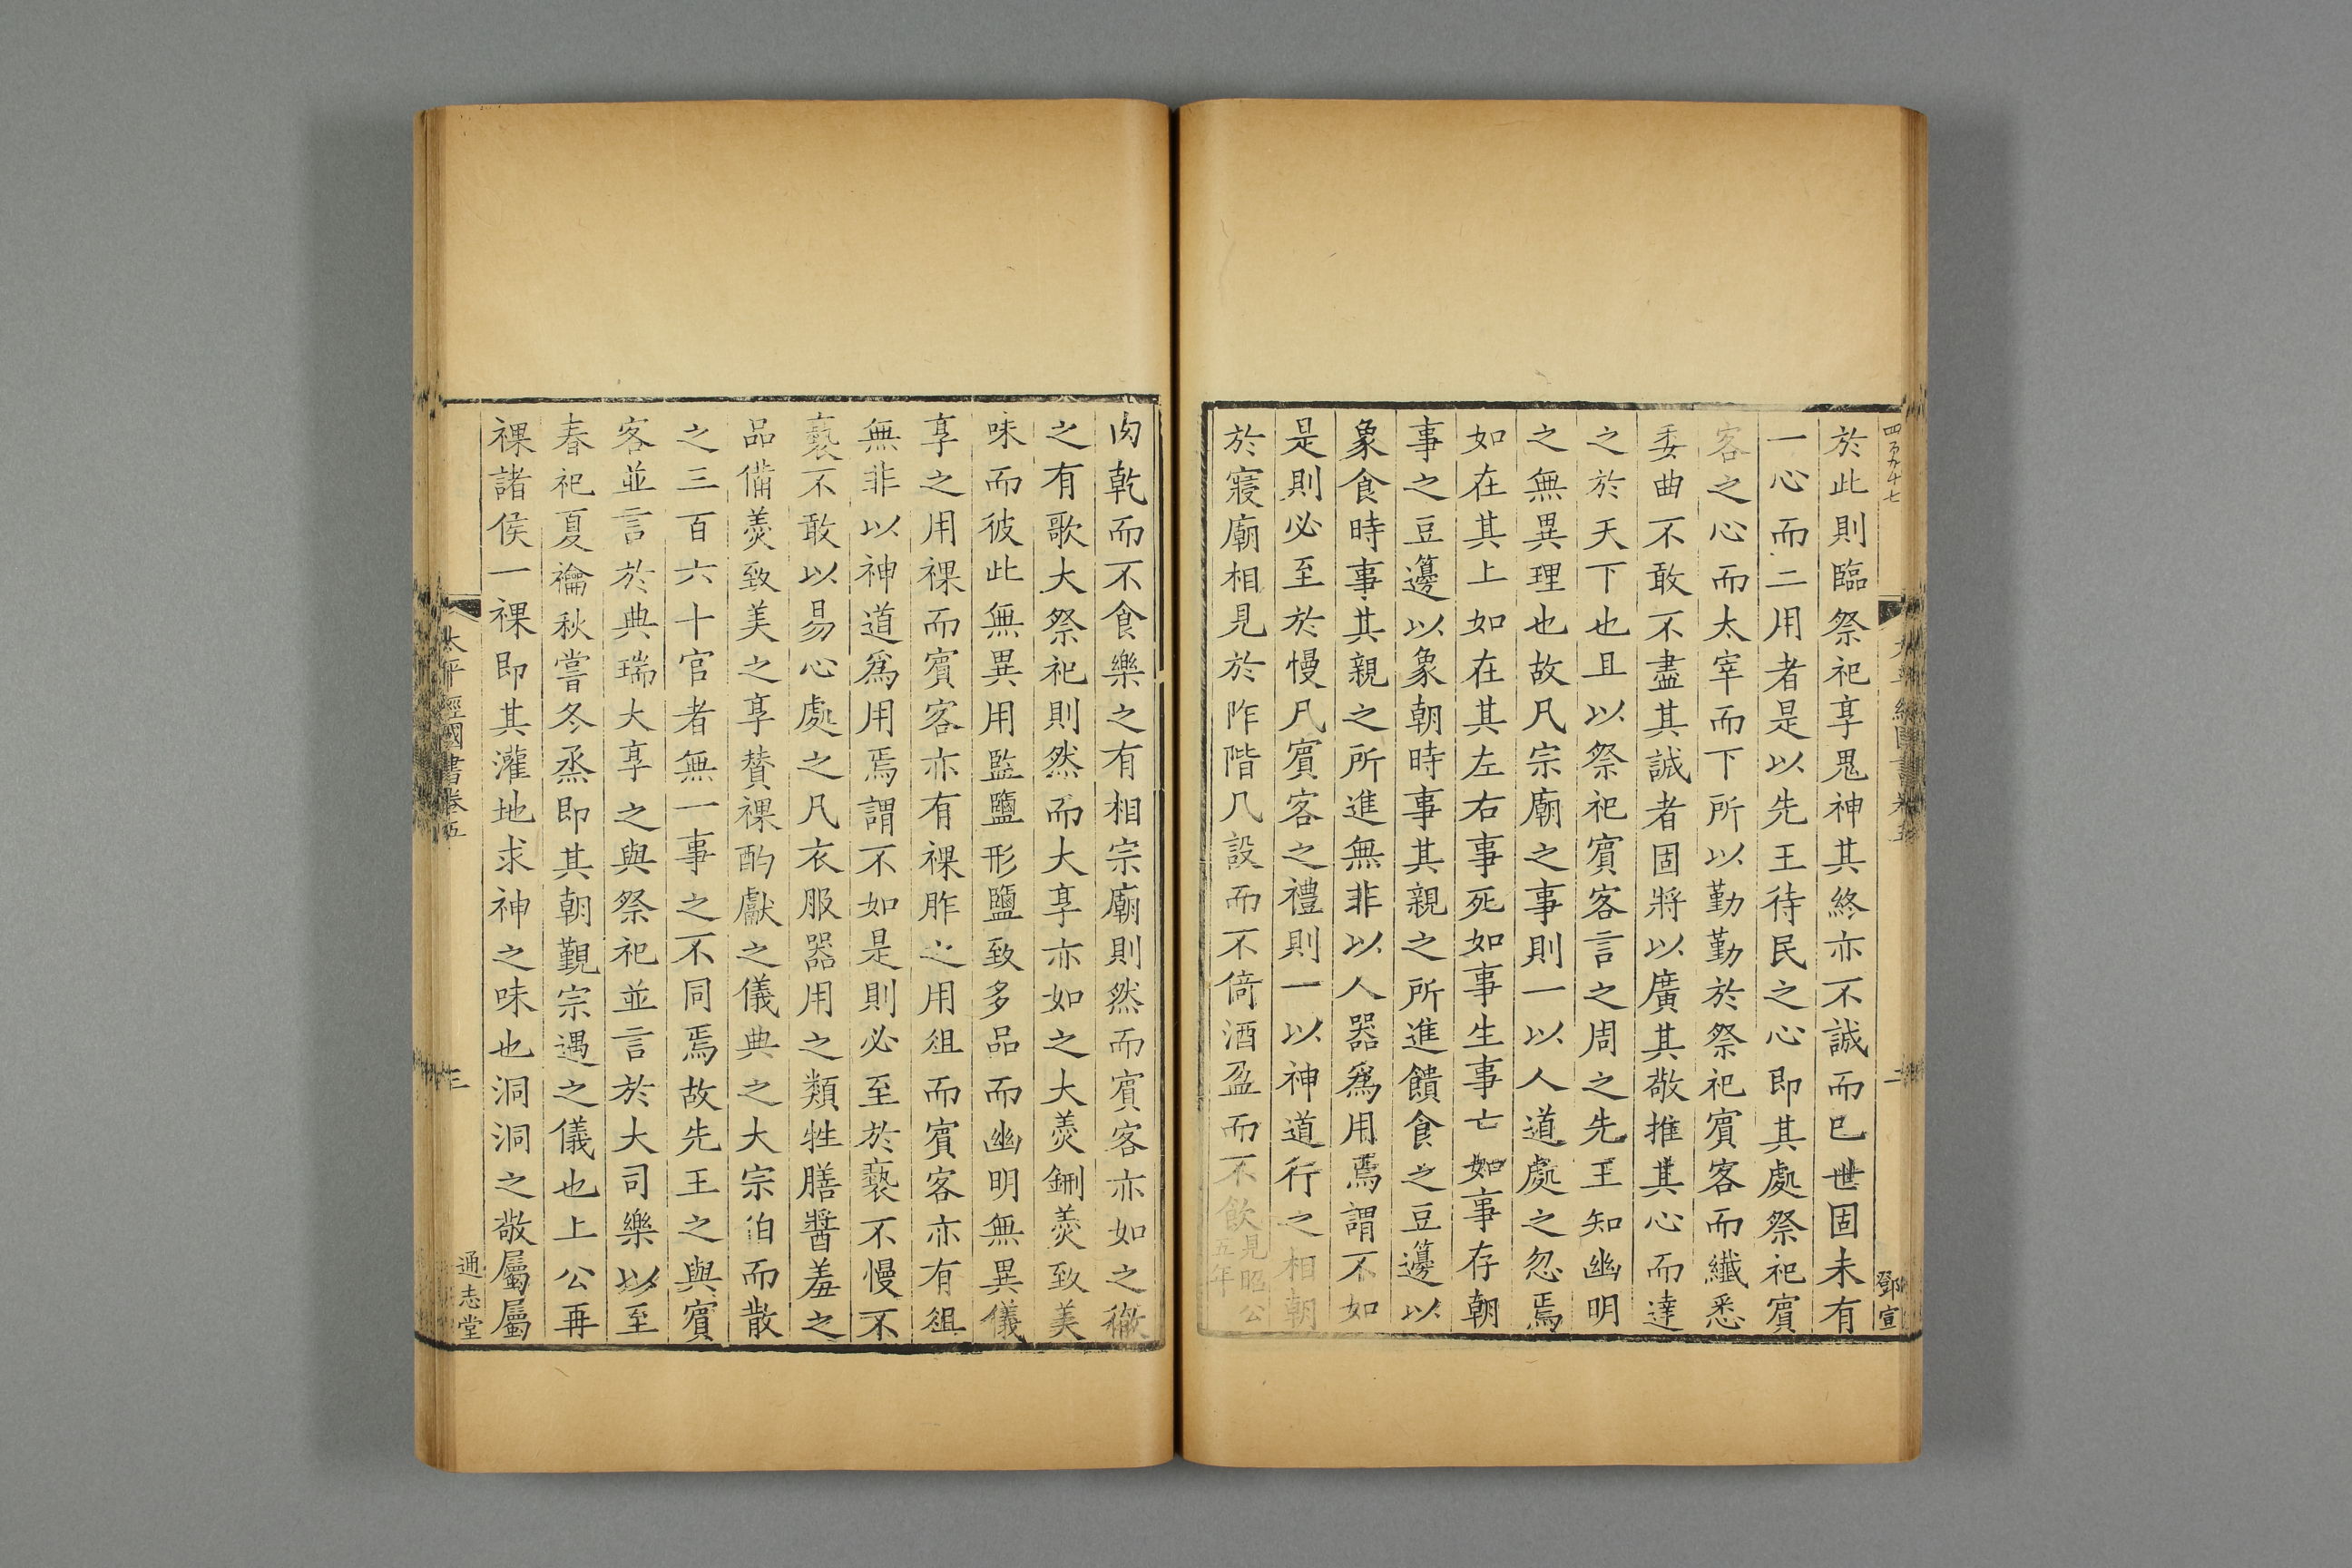 四百九十七
鄧宣
於此則臨祭祀享鬼神其終亦不誠而已世固未有
一心而二用者是以先王待民之心即其處祭祀賓
客之心而太宰而下所以勤勤於祭祀賓客而纖悉
委曲不敢不盡其誠者固將以廣其敬推其心而達
之於天下也且以祭祀賓客言之周之先王知幽明
之無異理也故凡宗廟之事則一以人道處之忽焉
如在其上如在其左右事死如事生事亡如事存朝
事之豆籩以象朝時事其親之所進饋食之豆籩以
象食時事其親之所進無非以人器爲用焉謂不如
是則必至於慢凡賓客之禮則一以神道行之相朝
於寢廟相見於阼階几設而不倚酒盈而不飲見昭公五年
肉乾而不食樂之有相宗廟則然而賓客亦如之徹
之有歌大祭祀則然而大享亦如之大羹鉶羹致美
味而彼此無異用監鹽形鹽致多品而幽明無異儀
享之用祼而賓客亦有祼胙之用俎而賓客亦有俎
無非以神道爲用焉謂不如是則必至於褻不慢不
褻不敢以易心處之凡衣服器用之類牲膳醬羞之
品備羹致美之享贊祼酌獻之儀典之大宗伯而散
之三百六十官者無一事之不同焉故先王之與賓
客並言於典瑞大享之與祭祀並言於大司樂以至
春祀夏禴秋嘗冬烝即其朝覲宗遇之儀也上公再
祼諸侯一祼即其灌地求神之味也洞洞之敬屬屬
太平經國書卷五
三
通志堂